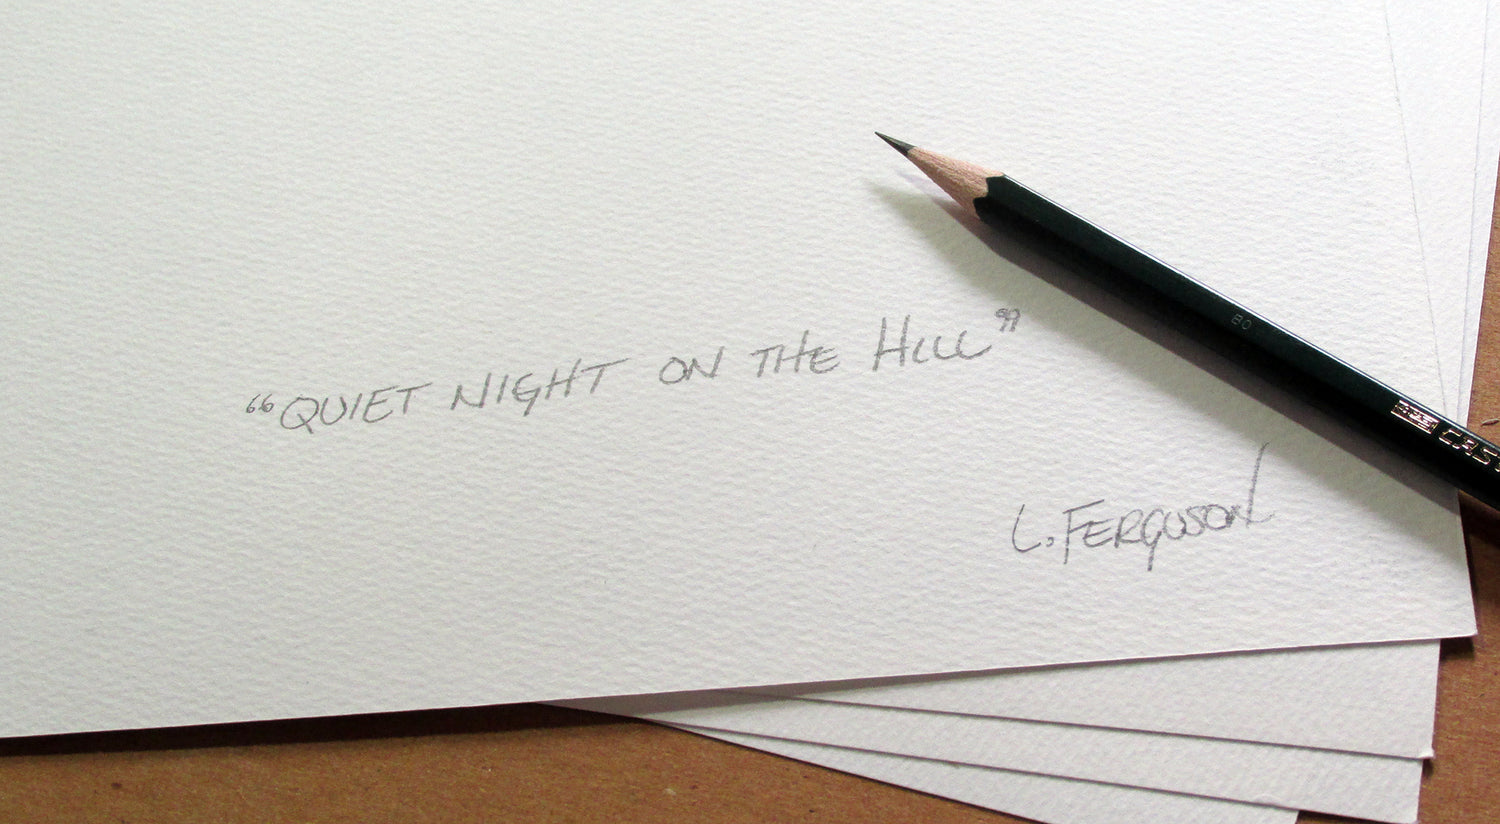 “QUIET NIGHT ON THE HILL”
L. FERGUSON
CAST